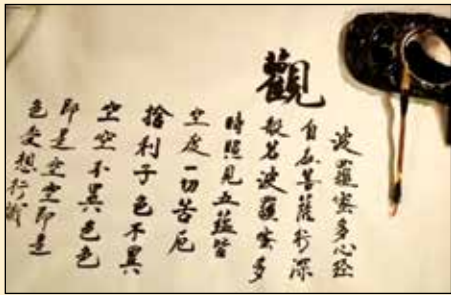 波羅蜜多心经
觀
自在菩薩行深
般若波羅蜜多
時照見五蘊皆
空度一切苦厄
捨利子色不異
空空不異色色
即是空空即是
色受想行識